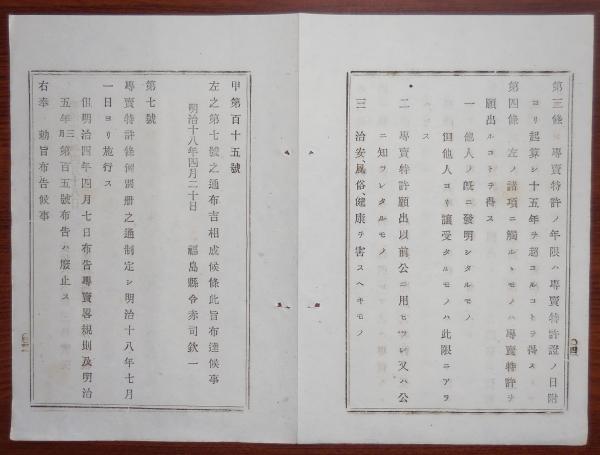 第三條 專賣特許ノ年限ハ專賣特許證ノ日附
ヨリ起算シ十五年ヲ超ユルコトヲ得ス
第四條 左ノ諸項ニ觸ルヽモノハ專賣特許ヲ
願出ルコトヲ得ス
一 他人ノ既ニ發明シタルモノ
但他人ヨリ讓受タルモノハ此限ニアラ
ス
二 專賣特許願出以前公ニ用ヒラレ又ハ公
ニ知ラレタルモノ
三 治安、風俗、健康ヲ害スヘキモノ
甲第百十五號
左之第七號之通布告相成候條此旨布達候事
明治十八年四月二十日
福島縣令赤司欽一
第七號
專賣特許條例別册之通制定シ明治十八年七月
一日ヨリ施行ス
但明治四年四月七日布告專賣畧規則及明治
五年三月第百五號布告ハ廢止ス
右奉 勅旨布告候事